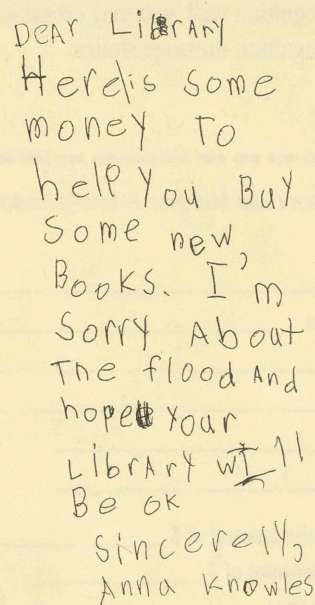 DEAr LibrAry
Here is some
money To
help you Buy
some new
Books. I'm
Sorry About
The flood And
hope your
LibrAry wIll
Be ok
sincerely,
Anna Knowles